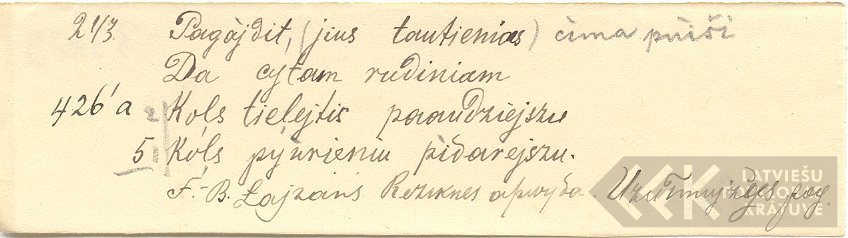 243. Pagàjdit, (jius tautienias) cīma pùiši
Da cytam rudiniam
426'a 2 Kols tielejtis paaudziejszu
5 Kóls pyurieniu pìdarejszu.
F.-B. Łajzans Rezeknes apwyda.
LATVIEŠU
FOLKLORAS
KRĀTUVE